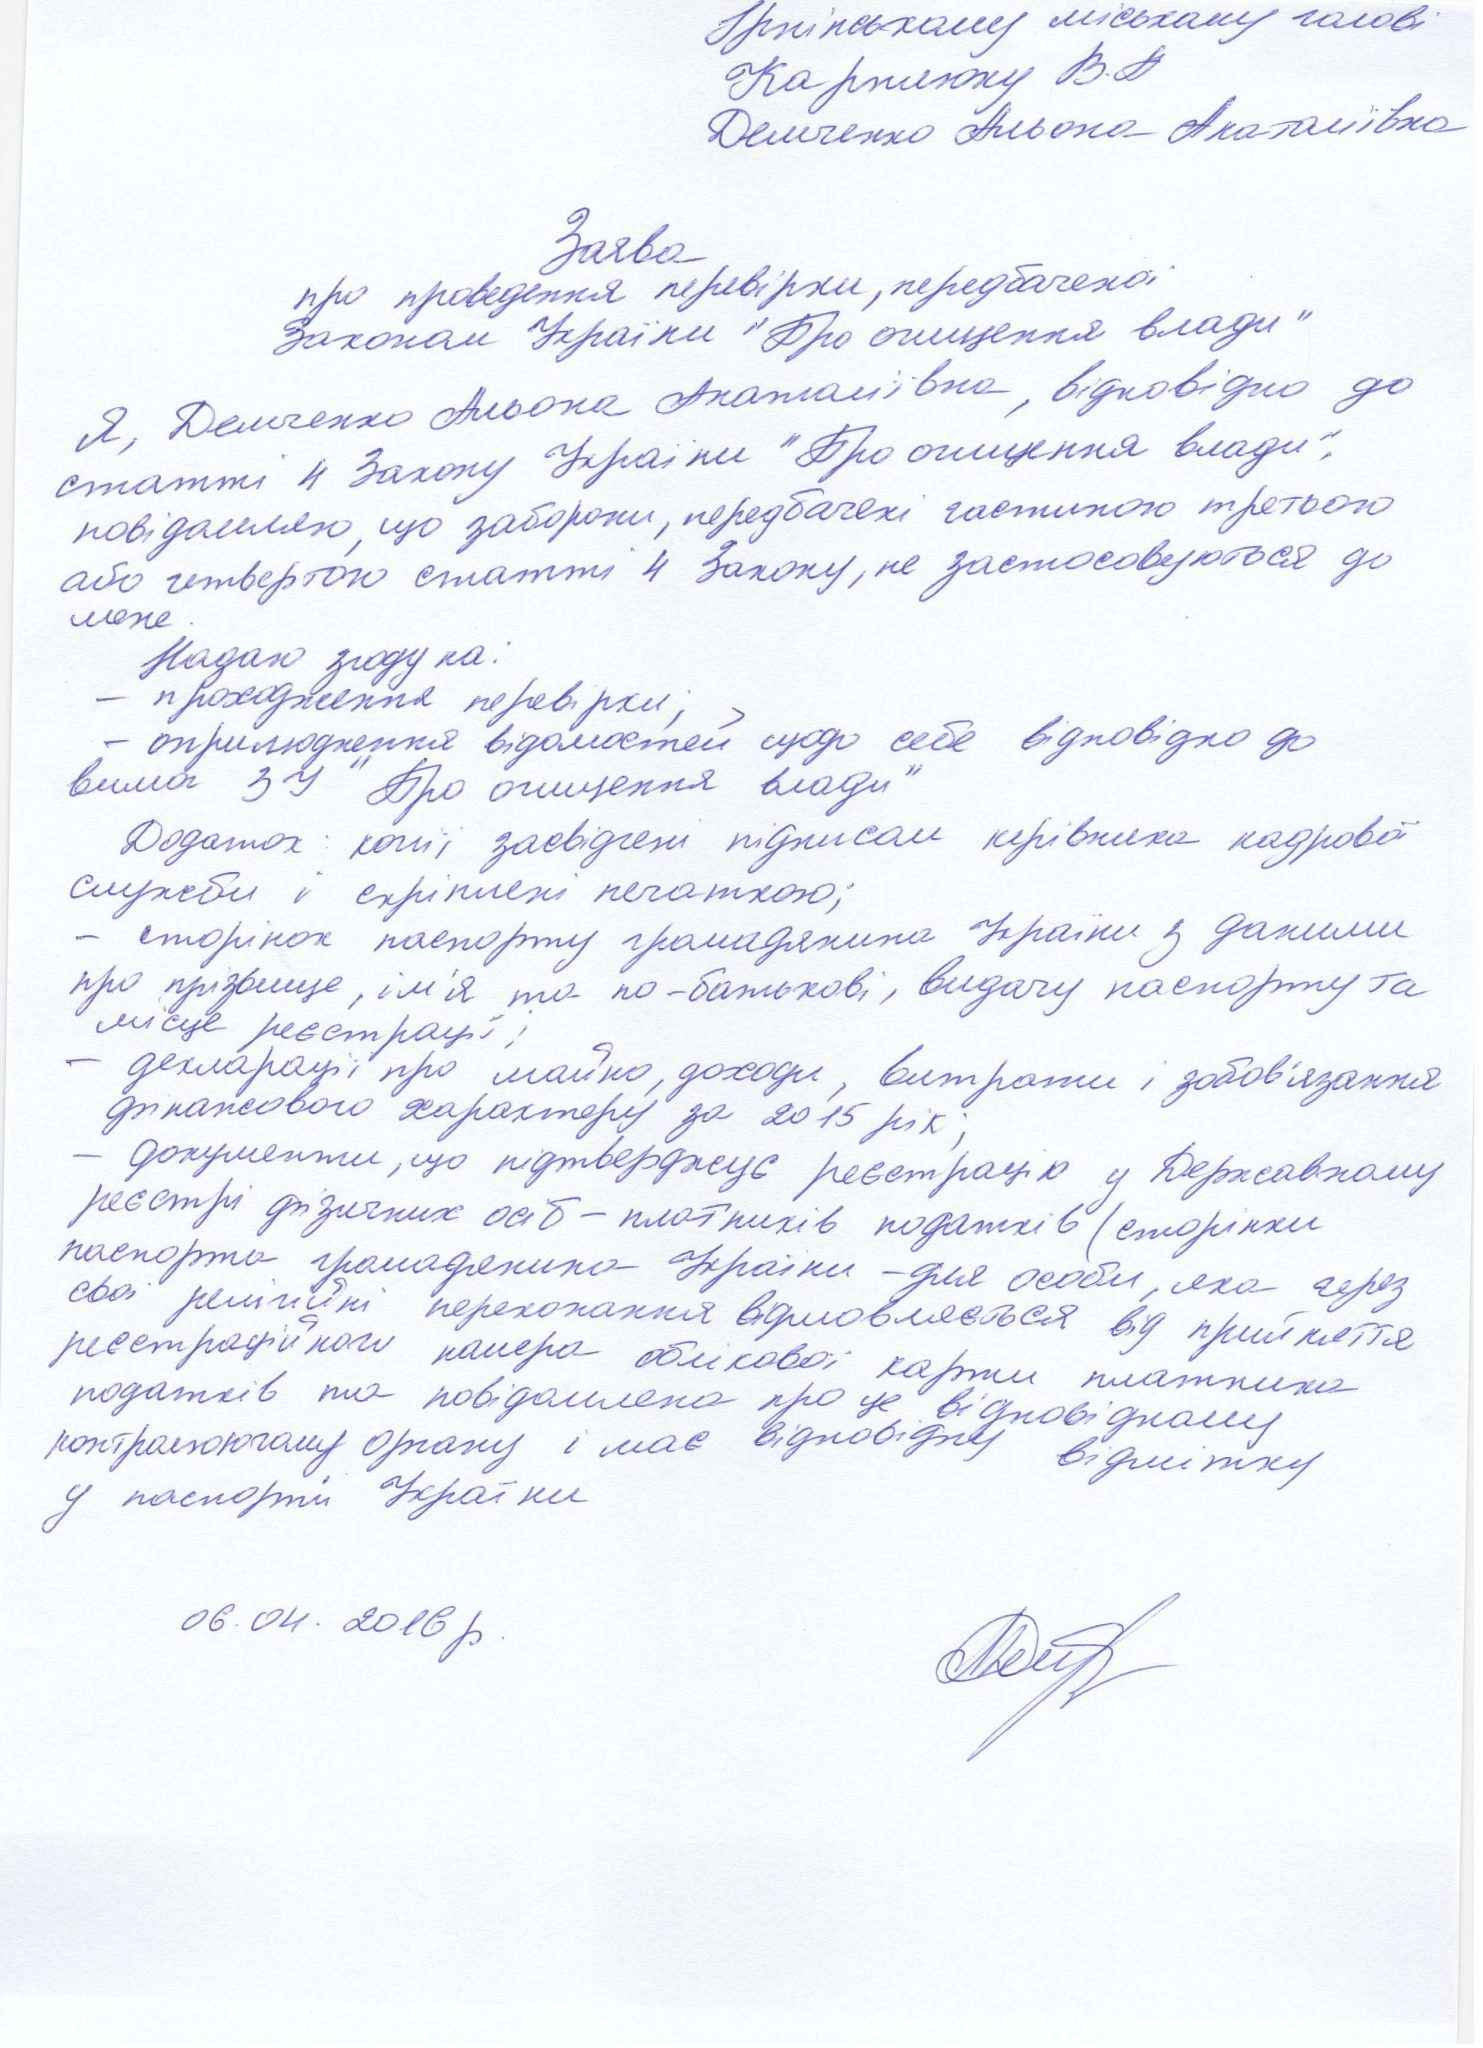 Ірпінському міському голові
Карплюку В.А
Демченко Альона Анатоліївна
Заява
про проведення перевірки, передбаченої
Законом України "Про очищення влади"
Я, Демченко Альона Анатоліївна, відповідно до
статті 4 Закону України "Про очищення влади",
повідомляю, що заборони, передбачені частиною третьою
або четвертою статті 4 Закону, не застосовуються до
мене.
Надаю згоду на:
- проходження перевірки;
- оприлюднення відомостей щодо себе відповідно до
вимог ЗУ "Про очищення влади"
Додаток: копії засвідчені підписом керівника кадрової
служби і скріплені печаткою;
- сторінок паспорту громадянина України з даними
про прізвище, ім'я та по-батькові, видачу паспорту та
місце реєстрації;
- декларації про майно, доходи, витрати і зобов'язання
фінансового характеру за 2015 рік;
- документи, що підтверджує реєстрацію у Державному
реєстрі фізичних осіб - платників податків (сторінки
паспорта громадянина України - для особи, яка через
свої релігійні переконання відмовляється від прийняття
реєстраційного номера облікової картки платника
податків та повідомлена про це відповідному
контролюючому органу і має відповідну відмітку
у паспорті України
06.04.2016 р.